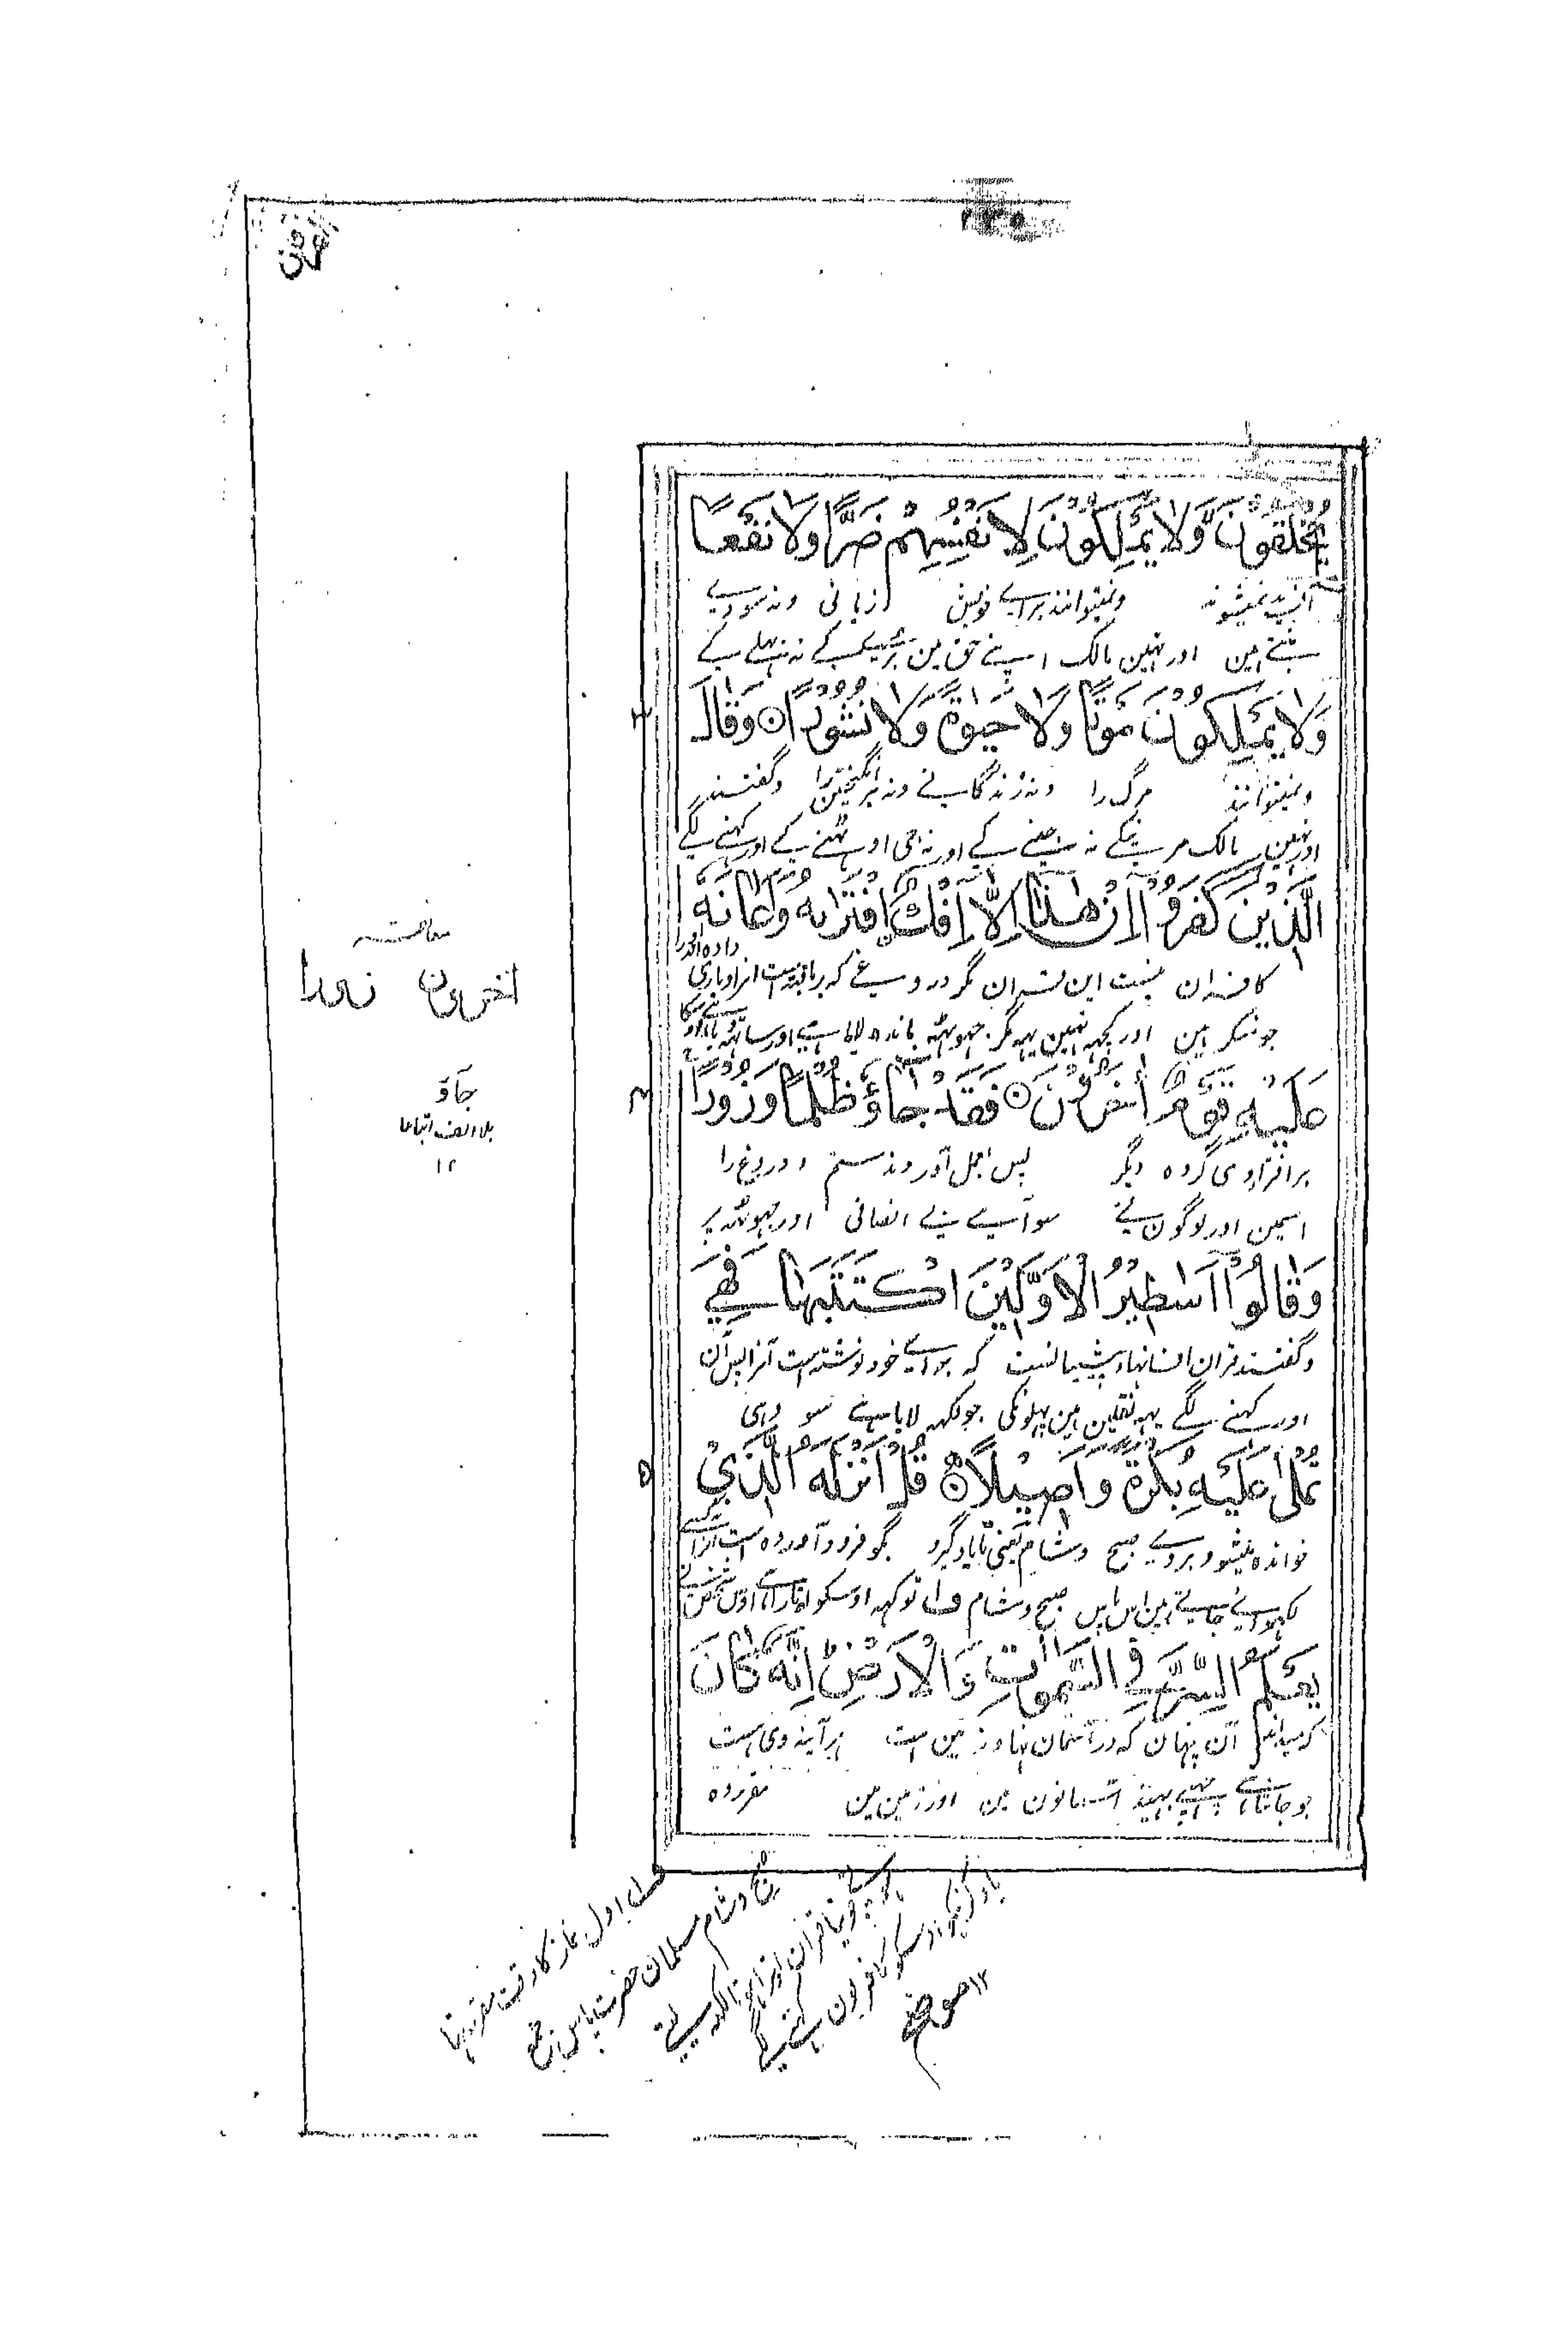 الفرقان
يُخْلَقُوْنَ وَلَا يَمْلِكُوْنَ لِاَنْفُسِهِمْ ضَرًّا وَّلَا نَفْعًا
آفریده میشوند ونمیتوانند براے خویش زیانی ونہ سودے
بنتے ہین اور نہین مالک اپنے حق مین برے کے نہ بہلے کے
وَّلَا يَمْلِكُوْنَ مَوْتًا وَّلَا حَيٰوةً وَّلَا نُشُوْرًا ۝ وَقَالَ
٣
ونمیتوانند مرگ را ونہ زندگانے ونہ برانگیختن را وگفتند
اور نہین مالک مرنیکے نہ جینے کے اور نہ جی اوٹہنے کے اور کہنے لگے
الَّذِيْنَ كَفَرُوْۤا اِنْ هٰذَاۤ اِلَّاۤ اِفْكٌ افْتَرٰىهُ وَاَعَانَهٗ
کافران نیست این قران مگر دروغے کہ بربافتہ است انرا ویاری دادہ اند
جو منکر ہین اور کچہہ نہین یہہ مگر جہوٹہہ باندہ لایا ہے اور ساتہہ دیا
عَلَيْهِ قَوْمٌ اٰخَرُوْنَ ۝ فَقَدْ جَآءُوْ ظُلْمًا وَّزُوْرًا
٤
بر افترا وی گروہ دیگر پس بعمل آوردند ستم ودروغ را
اسمین اور لوگون نے سو آے بے انصافی اور جہوٹہہ پر
وَقَالُوْۤا اَسَاطِيْرُ الْاَوَّلِيْنَ اكْتَتَبَهَا فَهِيَ
وگفتند قران افسانہاء پیشینیانست کہ براے خود نوشتہ است آنرا پس آن
اور کہنے لگے یہہ نقلین ہین پہلونکی جو لکہہ لایا ہے سو وہی
تُمْلٰى عَلَيْهِ بُكْرَةً وَّاَصِيْلًا ۝ قُلْ اَنْزَلَهُ الَّذِيْ
٥
خواندہ میشود بروے صبح وشام یعنی تا یاد گیرد بگو فرود آوردہ است آنرا کسے
لکہوائے جاتے ہین اس پاس صبح وشام ف تو کہہ اوسکو اتارا ہے اوس شخص نے
يَعْلَمُ السِّرَّ فِي السَّمٰوَاتِ وَالْاَرْضِ اِنَّهٗ كَانَ
کہ میداند آن پنہان کہ در آسمان نہا وزمین است ہر آینہ وی است
جو جانتا ہے چہپے بہید آسمانون مین اور زمین مین مقرر وہ
معانقہ
اٰخرون زورا
جآؤ
بلا الف اتباعا
١٢
ف اول نماز کا وقت مقرر تہا
صبح وشام مسلمان حضرت پاس جمع